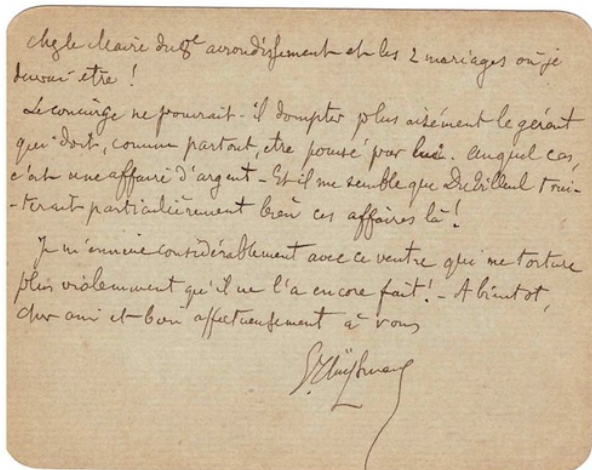 chez le Maire du 8e arrondissement et les 2 mariages où je
devrai etre !
Le concierge ne pourrait-il dompter plus aisément le gérant
qui doit, comme partout, etre pousé par lui. auquel cas,
c'est une affaire d'argent - Et il me semble que Dutilleul trai-
-terait particulièrement bien ces affaires là !
Je m'ennuie considérablement avec ce ventre qui me torture
plus violemment qu'il ne l'a encore fait ! - A bientot,
cher ami et bien affectueusement à vous
G. Huÿsmans